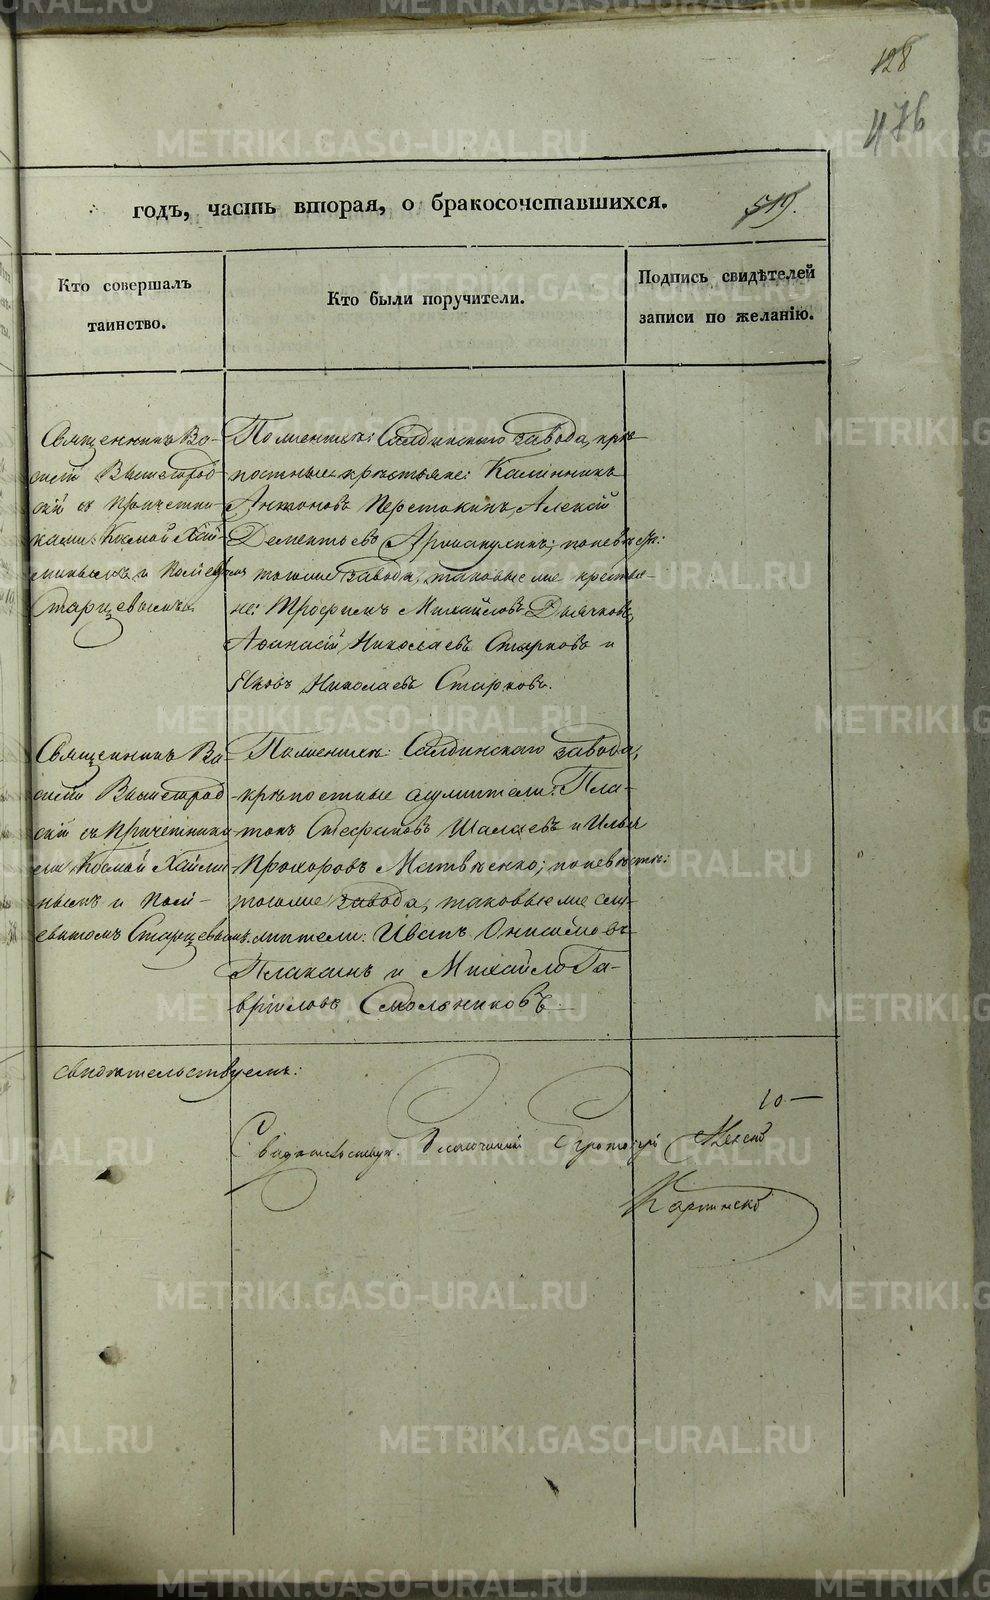 128
476
годъ, часть вторая, о бракосочетавшихся.
519.
Кто совершалъ
таинство.
Кто были поручители.
Подпись свидѣтелей
записи по желанію.
Священникъ Ва-
силій Вышегород-
скій съ причетни-
ками: Космой Хай-
миным и Полиев
Старцевымъ.
По женихѣ: Салдинскаго завода, крѣ-
постные крестьяне: Калинникъ
Антоновъ Перстокинъ, Алексій
Дементьевъ; по невѣстѣ:
тогоже завода, таковые же крестья-
не: Трофимъ Михайловъ Дьячковъ,
Афанасій Николаевъ Старковъ и
Яковъ Николаевъ Старковъ.
Священникъ Ва-
силій Вышегород-
скій съ причетника-
ми Космой Хайми-
нымъ и Поли-
евктомъ Старцевымъ.
По женихѣ: Салдинскаго завода,
крѣпостные служители: Пла-
тонъ Стефановъ Шалаевъ и Илья
Прохоровъ Матвѣенко; по невѣстѣ:
тогоже завода, таковые же слу-
жители: Иванъ Онисимовъ
Плаксинъ и Михайло Га-
вриловъ Смольниковъ.
свидѣтельствуемъ:
10 —
Свидѣтельствую. Благочинный Протоіерей
Карпинскій
METRIKI.GASO-URAL.RU